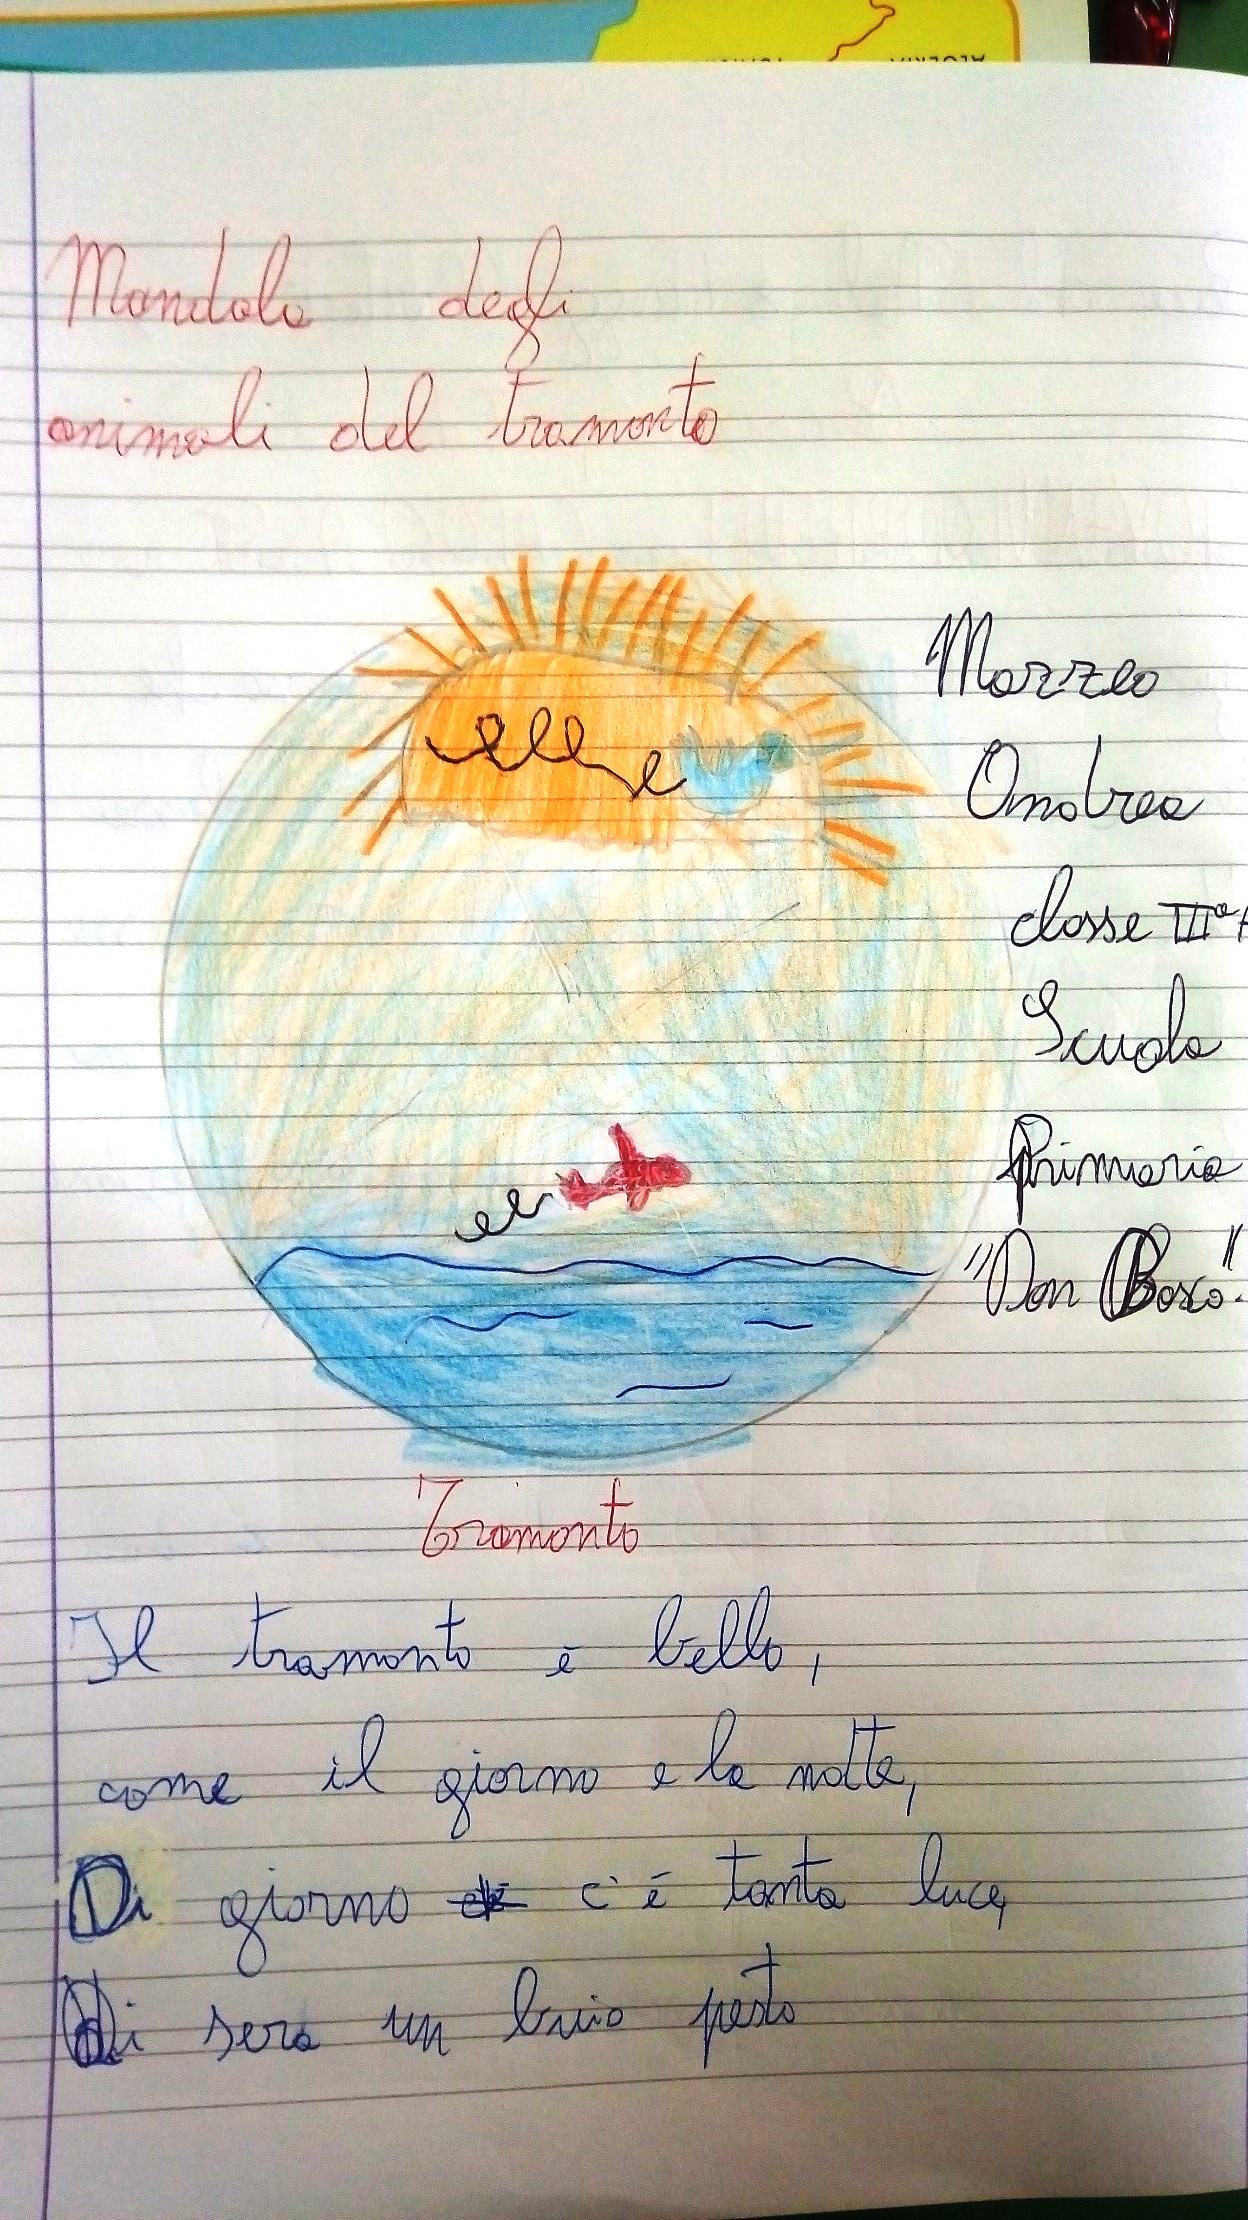 Mandala degli
animali del tramonto
Mazzeo
Andrea
classe III^a A
Scuola
Primaria
"Don Bosco".
Tramonto
Il tramonto è bello,
come il giorno e la notte,
Di giorno c'è tanta luce,
Di sera un buio pesto